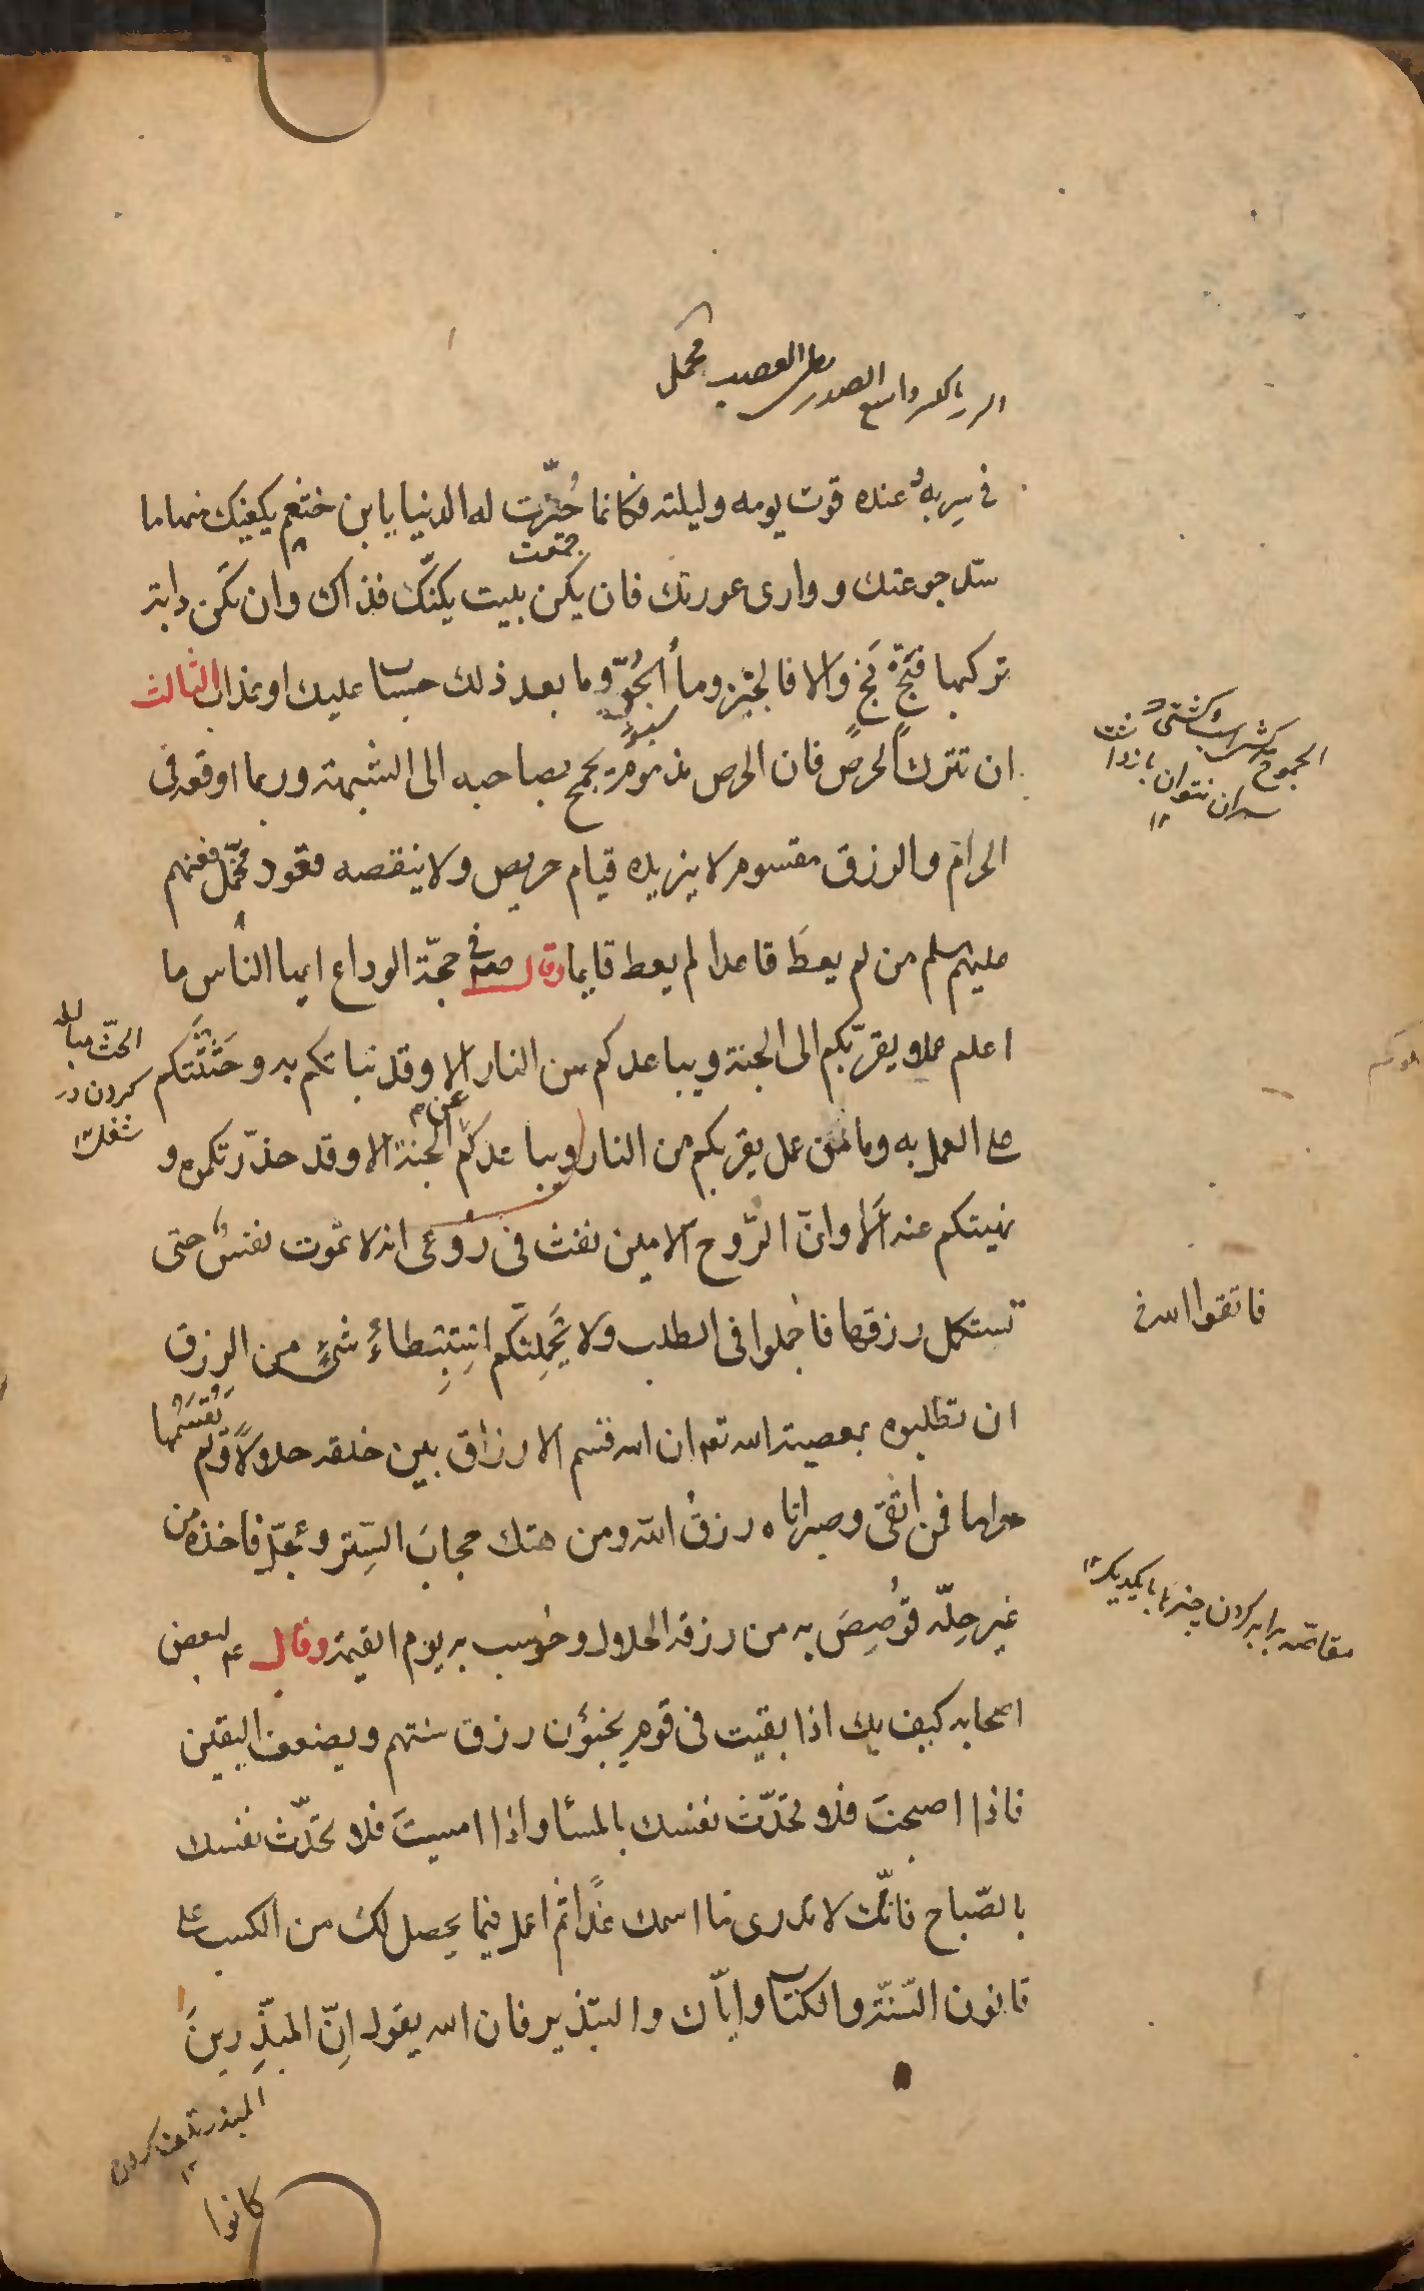 واسع الصدر
فى سربه و عنده قوت يومه وليلته فكانما حُيّزت له الدنيا يا ابن خثعم يكفيك منها ما
جمعت
سد جوعتك و وارى عورتك فان يكن بيت يكنّك فذاك وان تكن دابة
تركبها فبَخْ بَخْ والا فالخبز وماء الجرّ وما بعد ذلك حساب عليك او عذاب الثالث
سبوى
ان تترك الحرص فان الحرص مذموم يجمح بصاحبه الى الشبهة وربما اوقعه فى
الحرام والرزق مقسوم لا يزيده قيام حريص ولا ينقصه قعود مجمّل فعنهم
عليهم سلم من لم يعطَ قاعدا لم يعط قايما وقال صعم فى حجّة الوداع ايها الناس ما
اعلم عملا يقرّبكم الى الجنة ويباعدكم من النار الا وقد نباتكم به وحَثَثْتكم
على العمل به وما من عمل يقربكم من النار ويباعدكم عن الجنة الا وقد حذّرتكموه و
نهيتكم عنه الَا وانّ الرّوح الامين نفث فى روعى انه لا تموت نفسٌ حتى
تستكمل رزقها فاجملوا فى الطلب ولا يَحْمِلَنّكم استبطاءُ شئٍ من الرزق
ان تطلبوه بمعصية الله تعم ان الله قسم الارزاق بين خلقه حلالًا ولم يقسّمها
حراما فمن اتقى وصبر اتاه رزقُ الله ومن هتك حجابَ السِّتر وعجّل فاخذه من
غير حِلّه قوُصِصَ به من رزقه الحلال وحُوسب به يوم القيمة وقال عم لبعض
اصحابه كيف بك اذا بقيت فى قوم يخبؤن رزق سنتهم ويضعف اليقين
فاذا اصبحتَ فلا تحدّث نفسك بالمسا واذا امسيتَ فلا تحدّث نفسك
بالصّباح فانّك لا تدرى ما اسمك غدًا ثم اعمل فيما يحصل لك من الكسب على
قانون السّنّة والكتاب وايّاك والتبذير فان الله يقول اِنّ المبذِّرينَ
كانوا
الجموح
نتوان بازدا
الحثّ مبالغه
كردن در
شغلى ١٢
فاتقوا الله فى
مقاصّه برابر كردن چيزها بايكديگر ١٢
المبذر تلف كردن
١٢